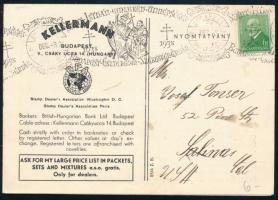 KELLERMANN
BUDAPEST
V. CSÁKY UCCA 14 (HUNGARY)
1938
NYOMTATVÁNY
Stamp Dealer's Association Washington D. C.
Stamp Dealer's Association Paris
Bankers: British-Hungarian Bank Ltd Budapest
Cable adress: Kellermann Csákyucca 14 Budapest
Cash strictly with order in banknotes or check
by registered letter. Other values at day's
exchange. Registered letters are affranchised with
novelties.
ASK FOR MY LARGE PRICE LIST IN PACKETS,
SETS AND MIXTURES e.s.o. gratis.
Only for dealers.
Mr
Josef Tonser
52 Street
Salinas
Cal
USA
6-